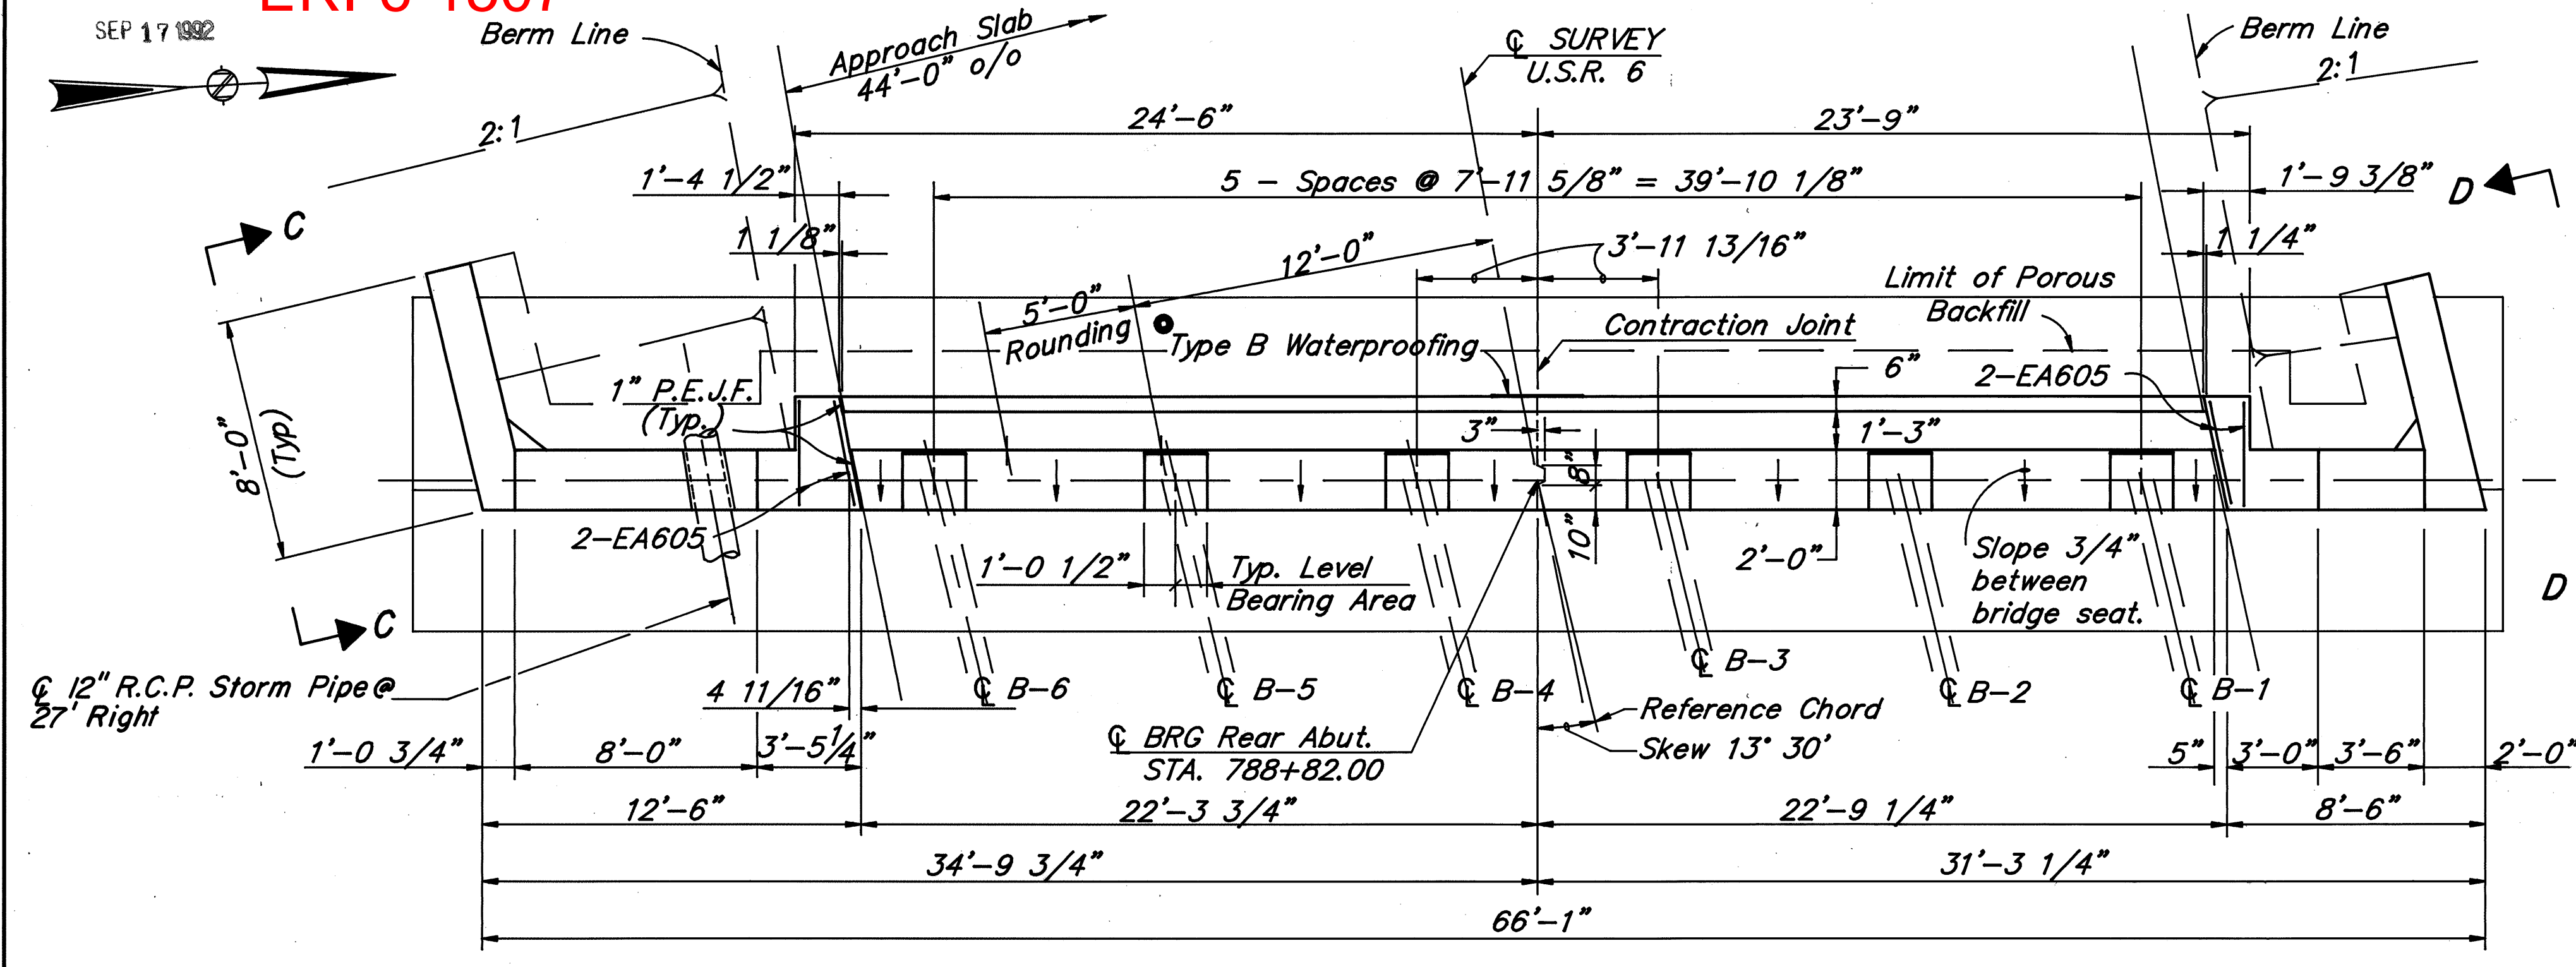 SEP 17 1992
Berm Line
Approach Slab
44'-0" o/o
℄ SURVEY
U.S.R. 6
Berm Line
2:1
2:1
24'-6"
23'-9"
1'-4 1/2"
5 - Spaces @ 7'-11 5/8" = 39'-10 1/8"
1'-9 3/8"
D
C
1 1/8"
12'-0"
3'-11 13/16"
1 1/4"
5'-0"
Rounding
Limit of Porous
Backfill
Type B Waterproofing
Contraction Joint
6"
2-EA605
1" P.E.J.F.
(Typ.)
8'-0"
(Typ)
3"
8"
1'-3"
10"
2-EA605
1'-0 1/2"
Typ. Level
Bearing Area
2'-0"
Slope 3/4"
between
bridge seat.
D
C
℄ 12" R.C.P. Storm Pipe @
27' Right
4 11/16"
℄ B-6
℄ B-5
℄ B-4
℄ B-3
℄ B-2
℄ B-1
Reference Chord
Skew 13° 30'
℄ BRG Rear Abut.
STA. 788+82.00
1'-0 3/4"
8'-0"
3'-5 1/4"
5"
3'-0"
3'-6"
2'-0"
12'-6"
22'-3 3/4"
22'-9 1/4"
8'-6"
34'-9 3/4"
31'-3 1/4"
66'-1"